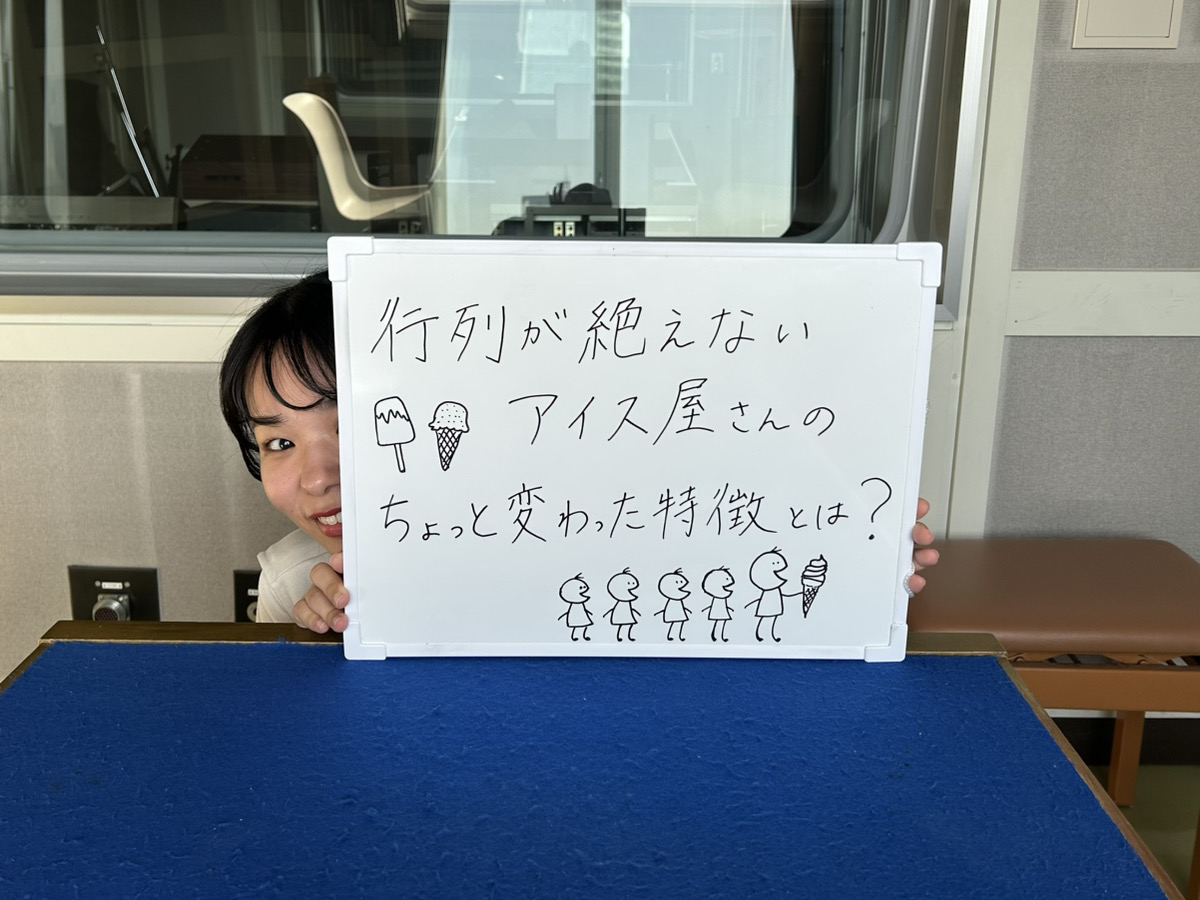 行列が絶えない
アイス屋さんの
ちょっと変わった特徴とは?